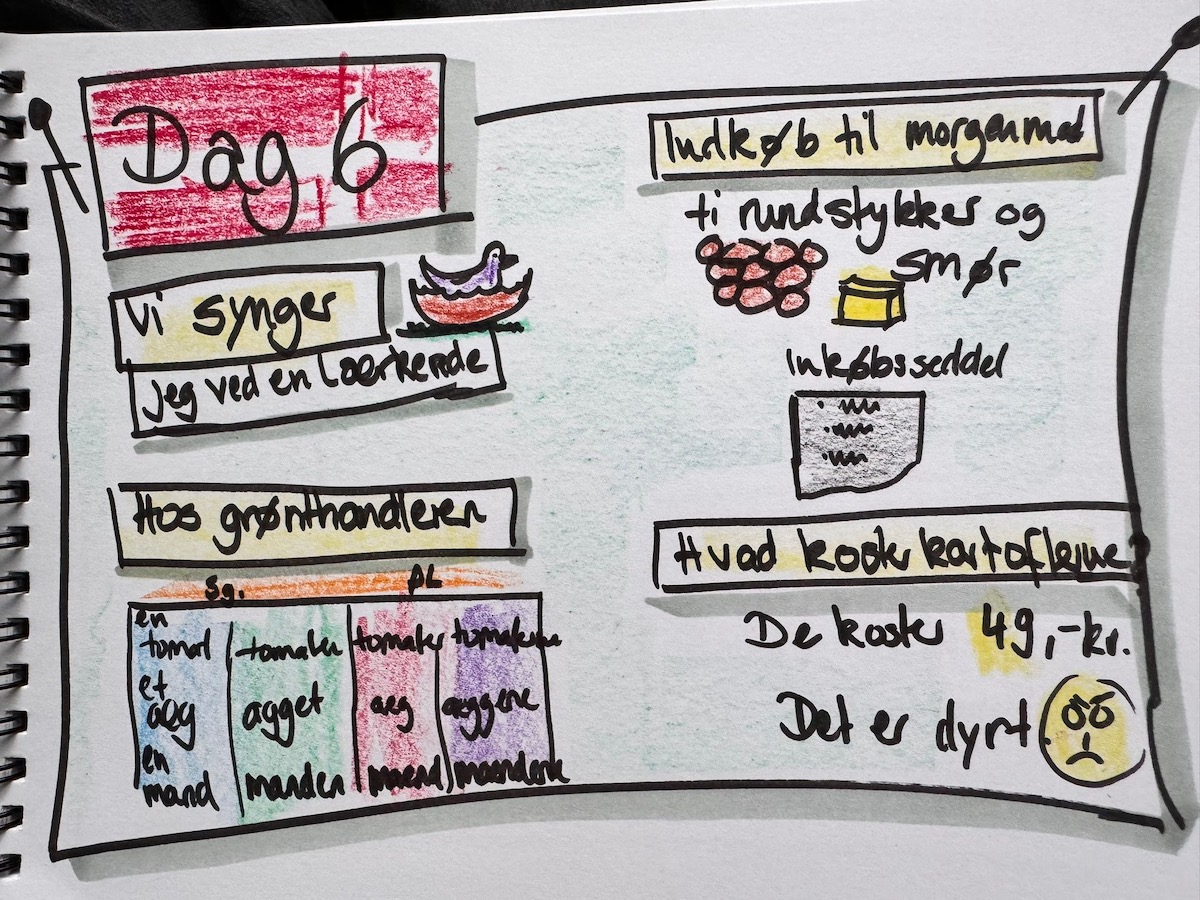 Dag 6
Vi synger
Jeg ved en lærkerede
Hos grønthandleren
sg. pl
en tomat tomaten tomater tomaterne
et æg ægget æg æggene
en mand manden mænd mændene
Indkøb til morgenmad
ti rundstykker og
smør
Inkøbsseddel
Hvad koster kartoflerne
De koster 49,-kr.
Det er dyrt